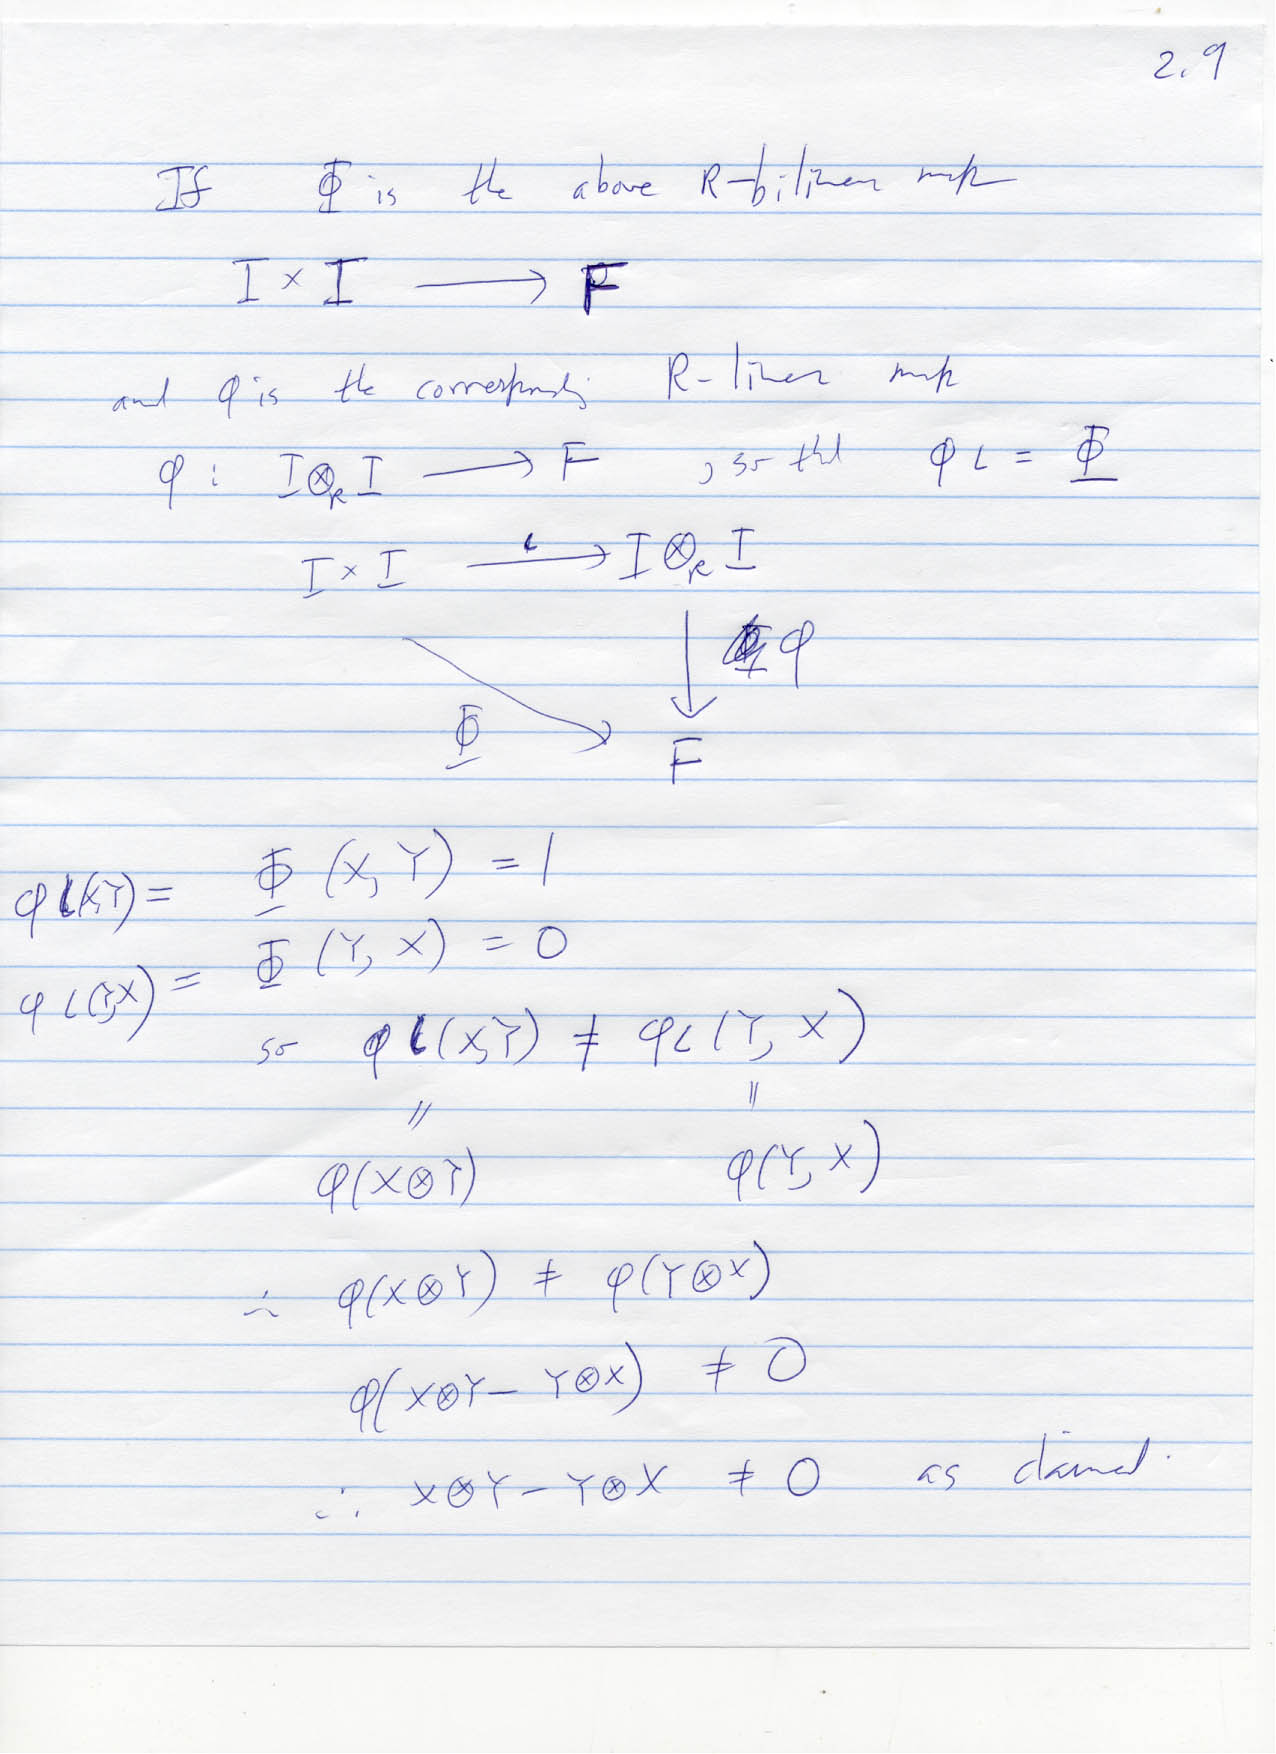 2.9
If Φ is the above R-bilinear map
I × I ⟶ F
and φ is the corresponding R-linear map
φ : I⊗_R I ⟶ F , so that φ ι = Φ
I × I ⟶ι I ⊗_R I
φ
Φ
F
φ ι(X,Y) = Φ (X, Y) = 1
φ ι(Y,X) = Φ (Y, X) = 0
so φ ι(X,Y) ≠ φ ι (Y, X)
〃 〃
φ(X⊗Y) φ(Y, X)
∴ φ(X⊗Y) ≠ φ(Y⊗X)
φ(X⊗Y – Y⊗X) ≠ 0
∴ X⊗Y – Y⊗X ≠ 0 as claimed.